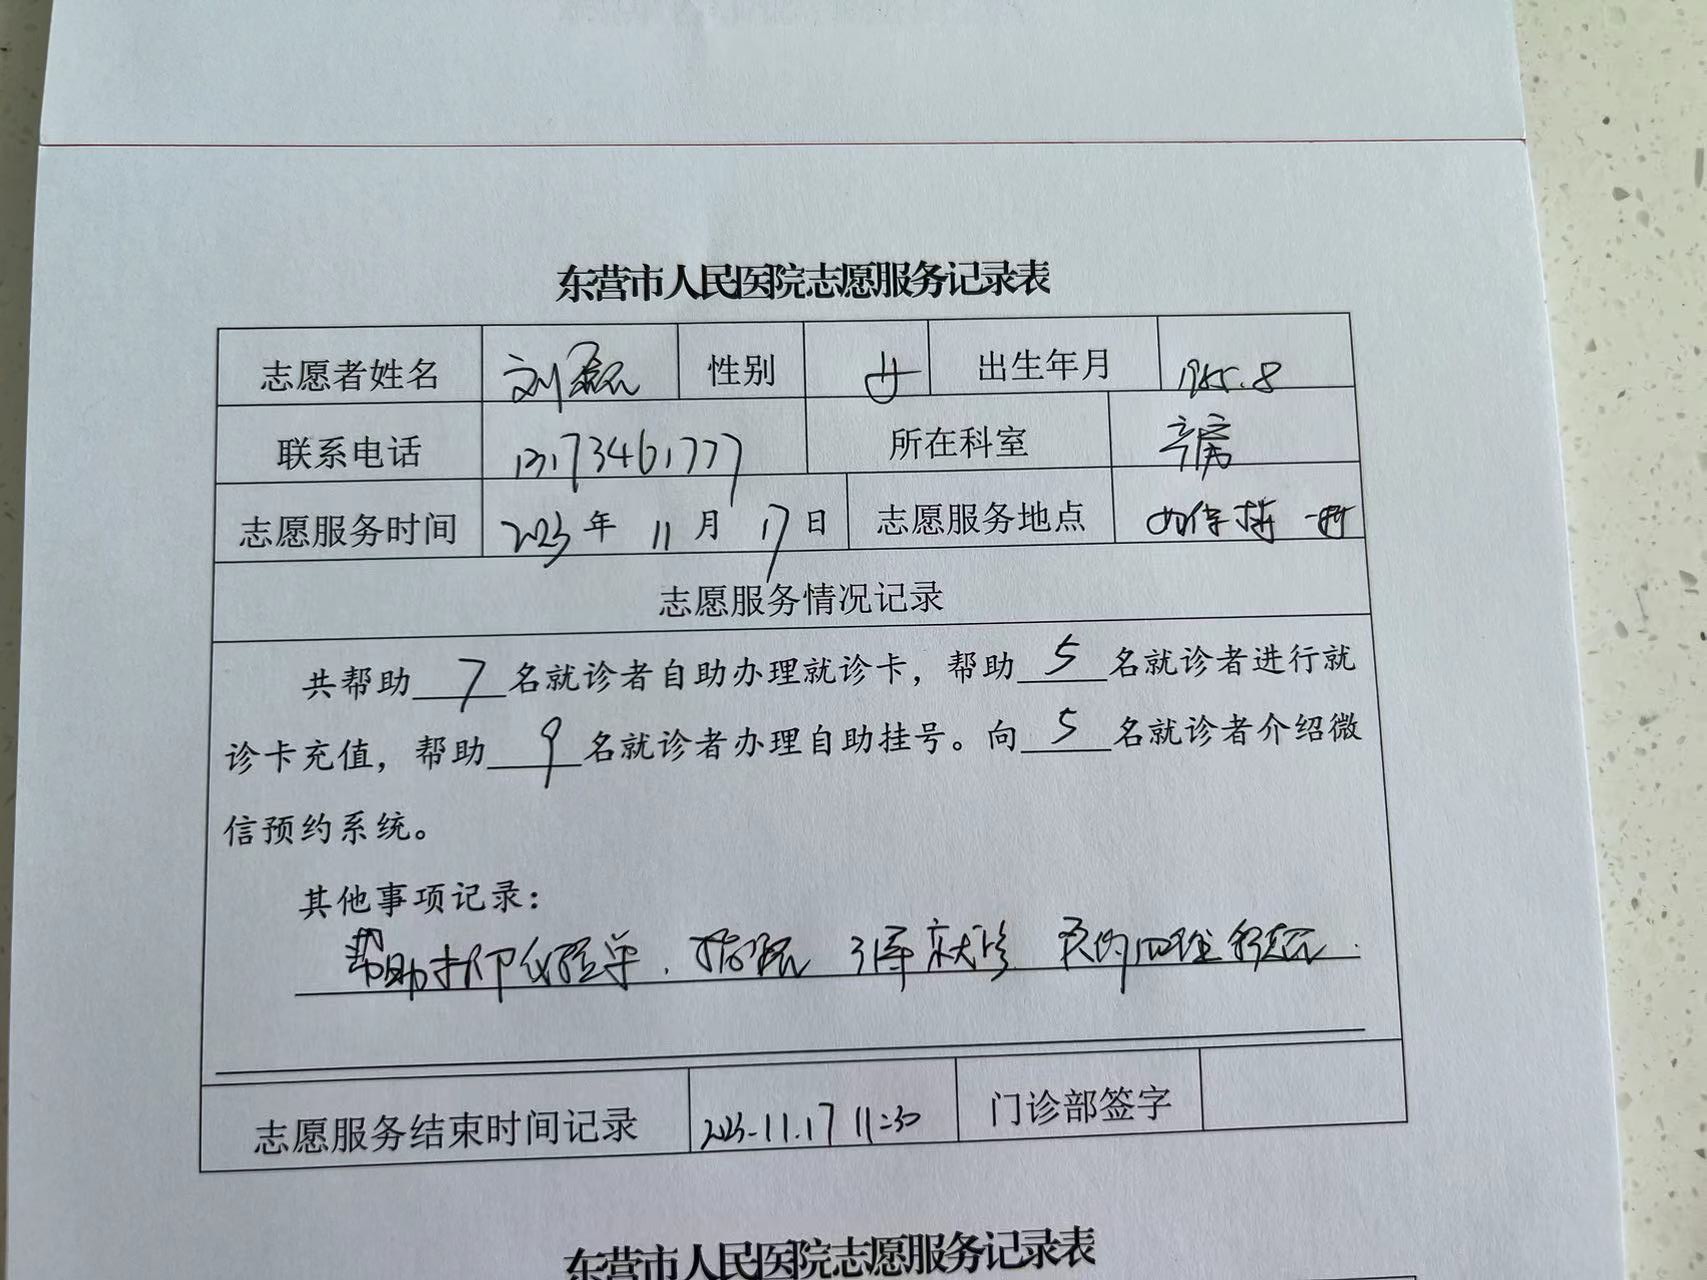 东营市人民医院志愿服务记录表
志愿者姓名 刘磊 性别 女 出生年月 1985.8
联系电话 13173461777 所在科室 产房
志愿服务时间 2023 年 11 月 17 日 志愿服务地点 妇保楼一楼
志愿服务情况记录
共帮助 7 名就诊者自助办理就诊卡，帮助 5 名就诊者进行就
诊卡充值，帮助 9 名就诊者办理自助挂号。向 5 名就诊者介绍微
信预约系统。
其他事项记录：
帮助打印化验单、 引导就诊
志愿服务结束时间记录 2023.11.17 11:30 门诊部签字
东营市人民医院志愿服务记录表